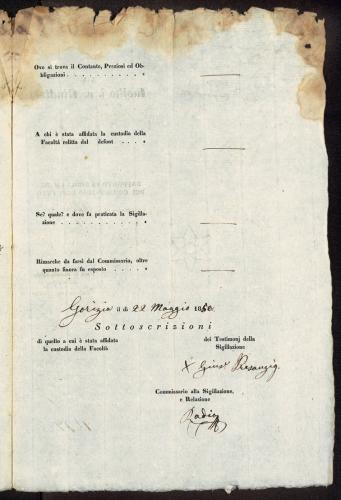 Ove si trova il Contante, Preziosi ed Ob-
bligazioni . . . . . . . . . . . „
A chi è stata affidata la custodia della
Facoltà relitta dal defont . . . . „
Se? quale? e dove fu praticata la Sigilla-
zione . . . . . . . . . . . . . „
Rimarche da farsi dal Commissario, oltre
quanto finora fu esposto . . . . . „
Gorizia li di 22 Maggio 1850.
Sottoscrizioni
di quello a cui è stata affidata
la custodia della Facoltà
dei Testimonj della
Sigillazione
X
Commissario alla Sigillazione,
e Relazione